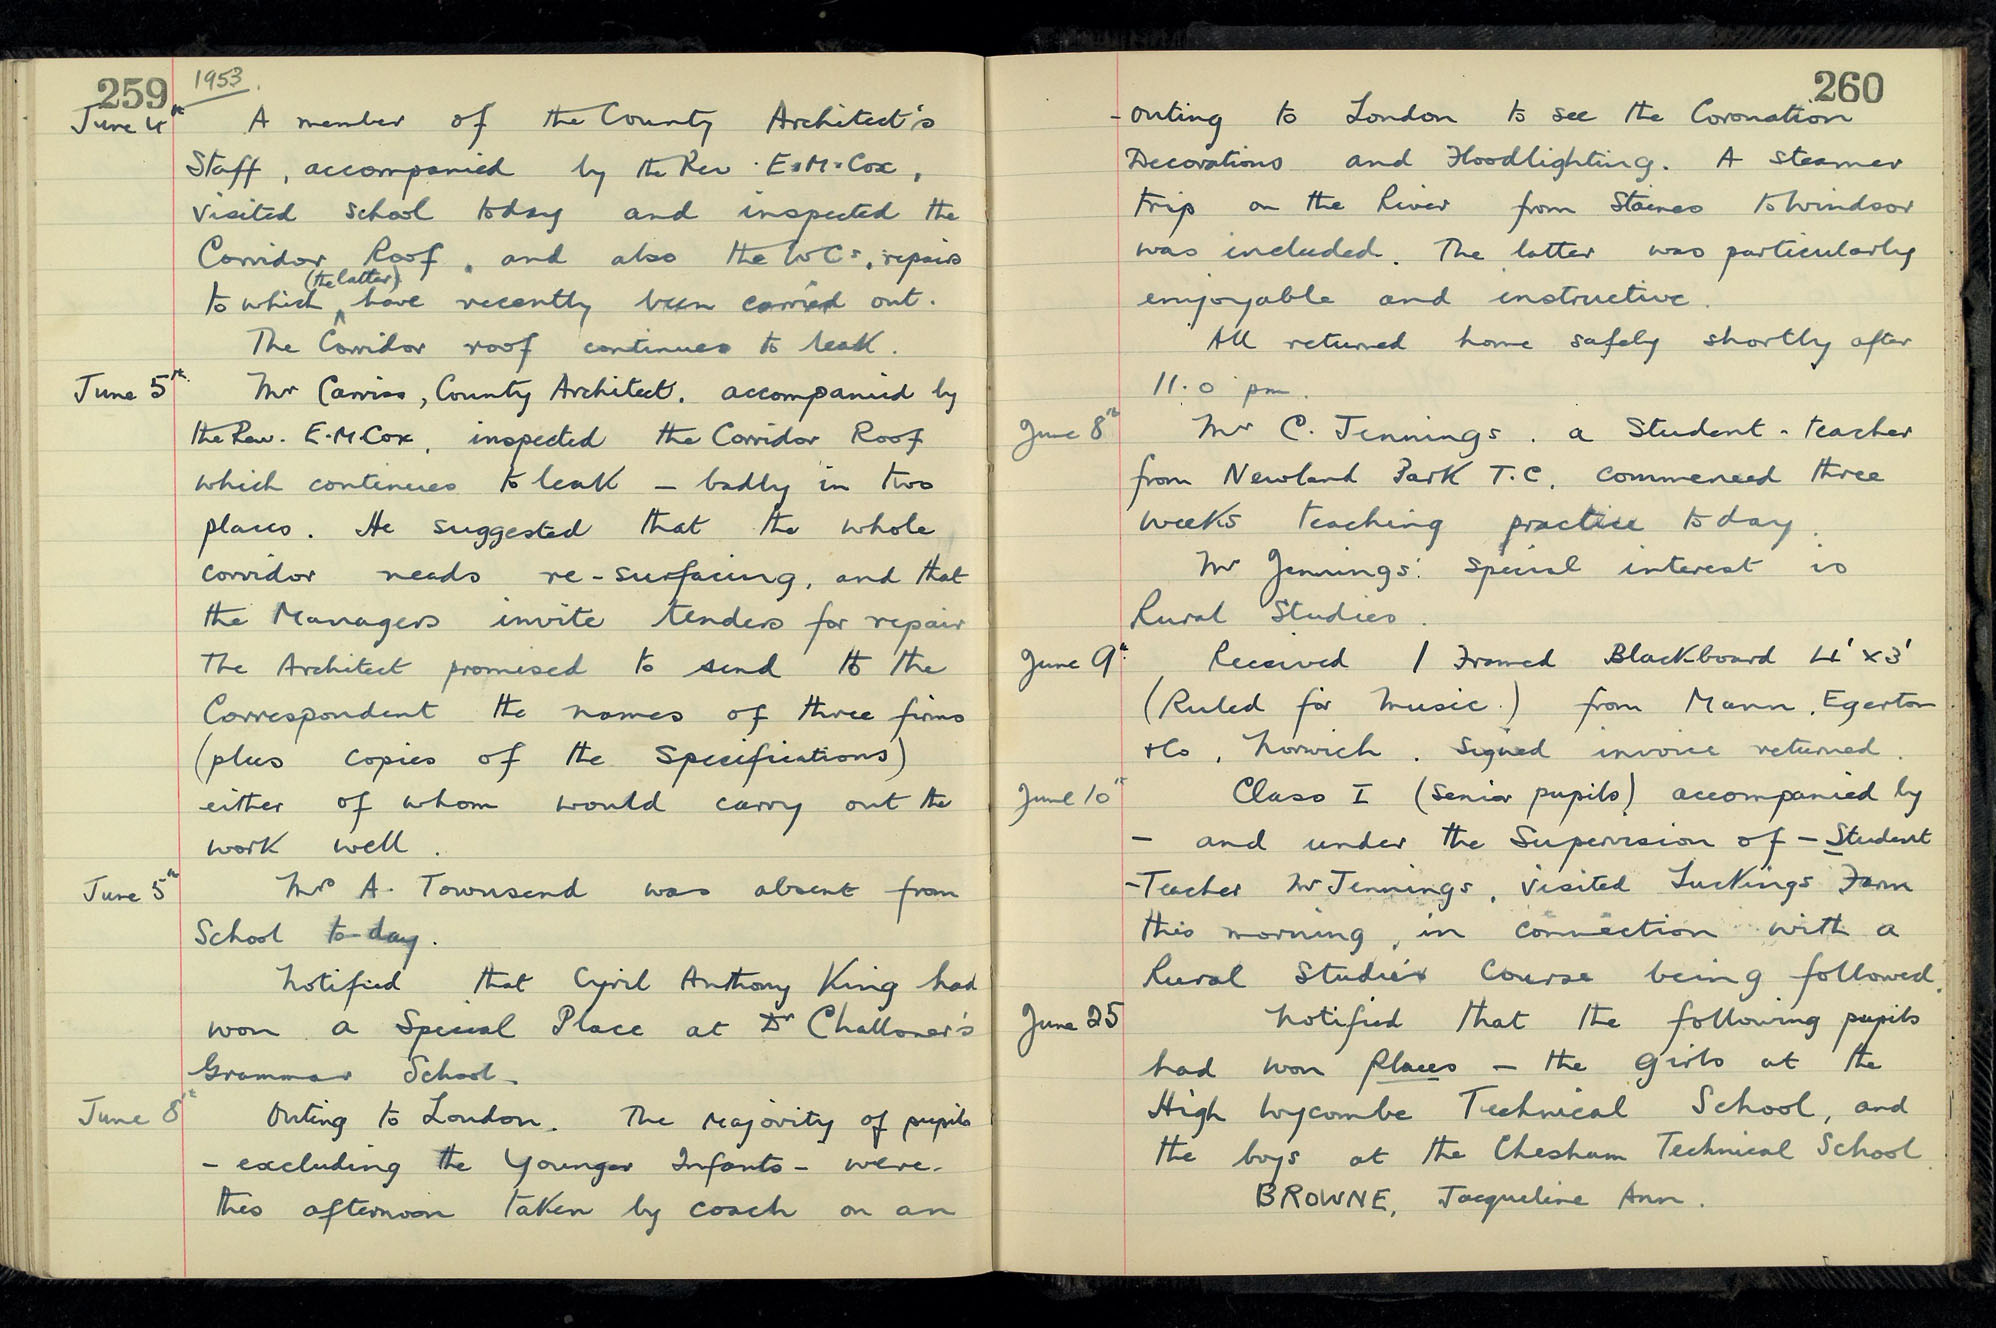 259
1953.
June 4th A member of the County Architect's
Staff, accompanied by the Rev. E.M.Cox,
visited school today and inspected the
Corridor Roof, and also the WCs, repairs
(the latter)
to which have recently been carried out.
The Corridor roof continues to leak.
June 5th Mr Carriss, County Architect, accompanied by
the Rev. E.M.Cox, inspected the Corridor Roof
which continues to leak – badly in two
places. He suggested that the whole
corridor needs re-surfacing, and that
the Managers invite tenders for repair
The Architect promised to send to the
Correspondent the names of three firms
(plus copies of the Specifications)
either of whom would carry out the
work well.
June 5th Mrs A. Townsend was absent from
School to-day.
Notified that Cyril Anthony King had
won a Special Place at Dr Challoner's
Grammar School.
June 8th Outing to London. The majority of pupils
– excluding the Younger Infants – were
this afternoon taken by coach on an
260
-outing to London to see the Coronation
Decorations and Floodlighting. A steamer
trip on the River from Staines to Windsor
was included. The latter was particularly
enjoyable and instructive.
All returned home safely shortly after
11.0 pm.
June 8th Mr C. Jennings, a Student-teacher
from Newland Park T.C. commenced three
weeks teaching practice today.
Mr Jennings' special interest is
Rural Studies.
June 9th Received 1 Framed Blackboard 4' x 3'
(Ruled for Music.) from Mann, Egerton
& Co, Norwich. Signed invoice returned.
June 10th Class I (Senior pupils) accompanied by
– and under the Supervision of – Student
-Teacher Mr Jennings, visited Luckings Farm
this morning, in connection with a
Rural Studies Course being followed.
June 25 Notified that the following pupils
had won Places – the girls at the
High Wycombe Technical School, and
the boys at the Chesham Technical School
BROWNE, Jacqueline Ann.